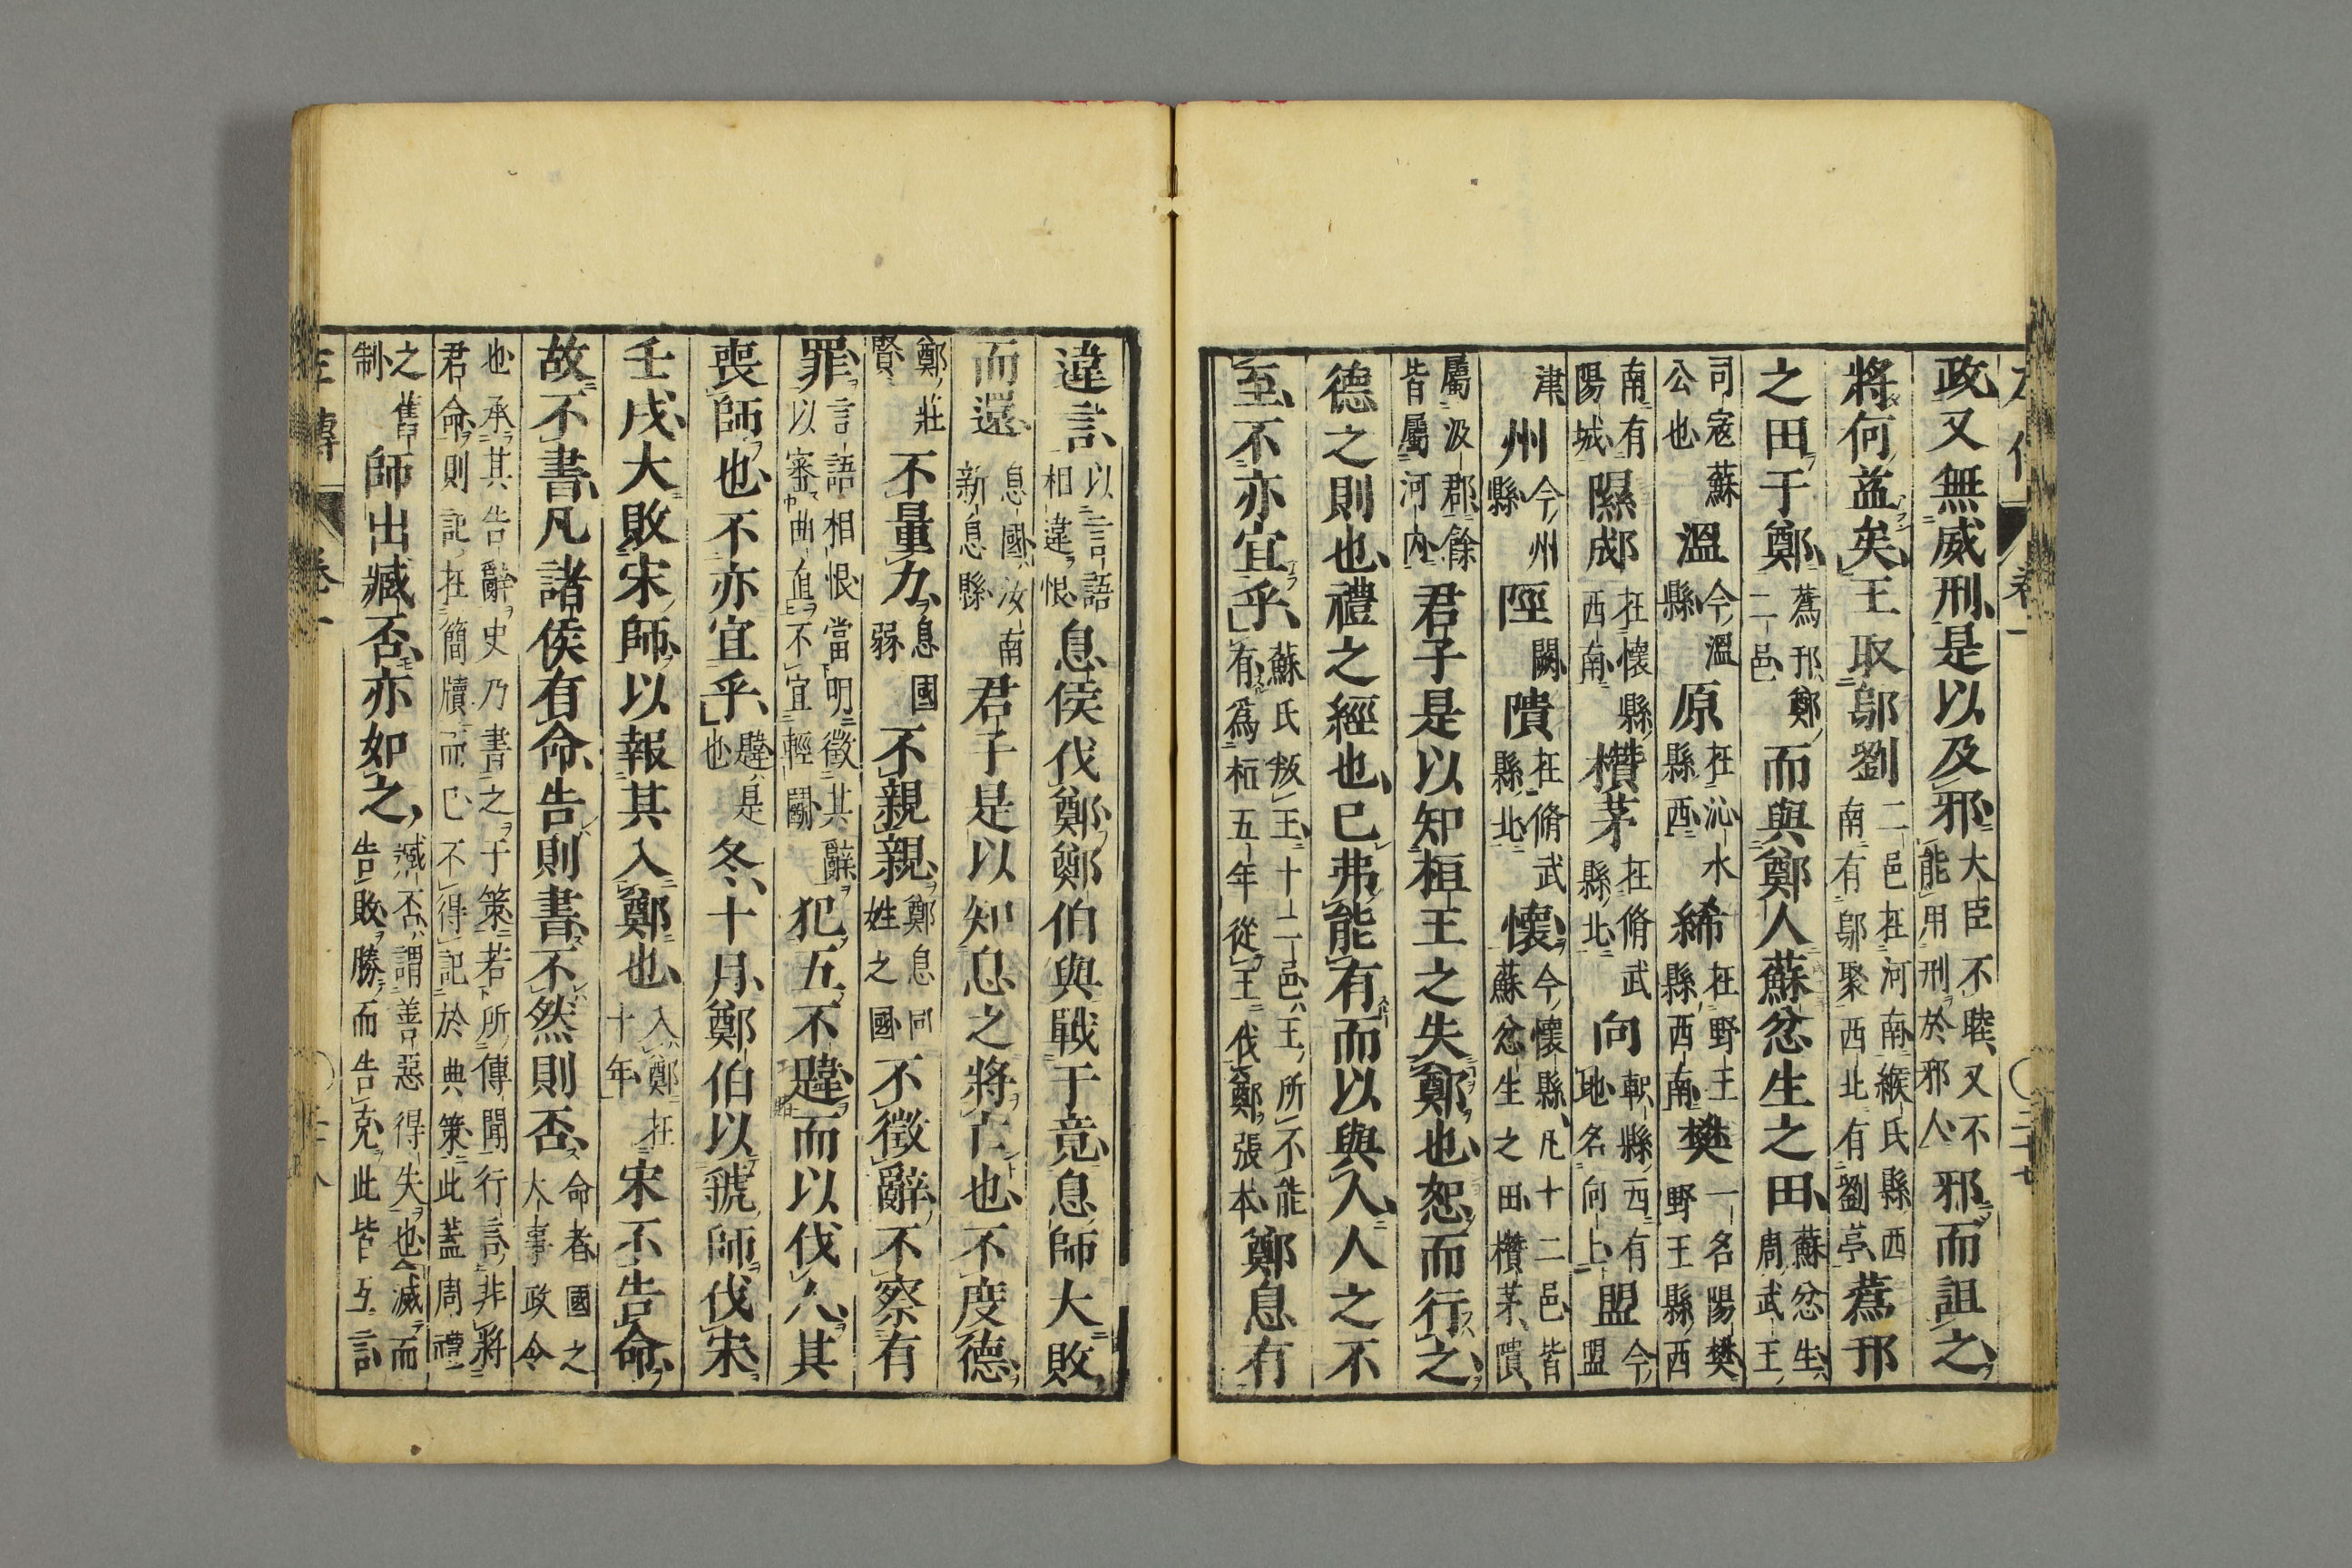 政又無威刑是以及邪大臣不睦又不能用刑於邪人邪而詛之
將何益矣王取鄔劉二邑在河南緱氏縣西南有鄔聚西北有劉亭蒍邘
之田于鄭蒍邘鄭二邑而與鄭人蘇忿生之田蘇忿生周武王
司寇蘇公也溫今溫縣原在沁水縣西絺在野王縣西南樊一名陽樊野王縣西
南有陽城隰郕在懷縣西南欑茅在脩武縣北向軹縣西有地名向上盟今盟
津州今州縣陘闕隤在脩武縣北懷今懷縣凡十二邑皆蘇忿生之田欑茅隤
屬汲郡餘皆屬河內君子是以知桓王之失鄭也恕而行之
德之則也禮之經也已弗能有而以與人人之不
至不亦宜乎蘇氏叛王十二邑王所不能有爲桓五年從王伐鄭張本鄭息有
違言以言語相違恨息侯伐鄭鄭伯與戰于竟息師大敗
而還息國汝南新息縣君子是以知息之將亡也不度德
鄭莊賢不量力息國弱不親親鄭息同姓之國不徵辭不察有
罪言語相恨當明徵其辭以審曲直不宜輕鬬犯五不韙而以伐人其
喪師也不亦宜乎韙是也冬十月鄭伯以虢師伐宋
壬戌大敗宋師以報其入鄭也入鄭在十年宋不告命
故不書凡諸侯有命告則書不然則否命者國之大事政令
也承其告辭史乃書之于策若所傳聞行言非將君命則記在簡牘而已不得記於典策此蓋周禮
之舊制師出臧否亦如之臧否謂善惡得失也滅而告敗勝而告克此皆互言
左傳 卷一